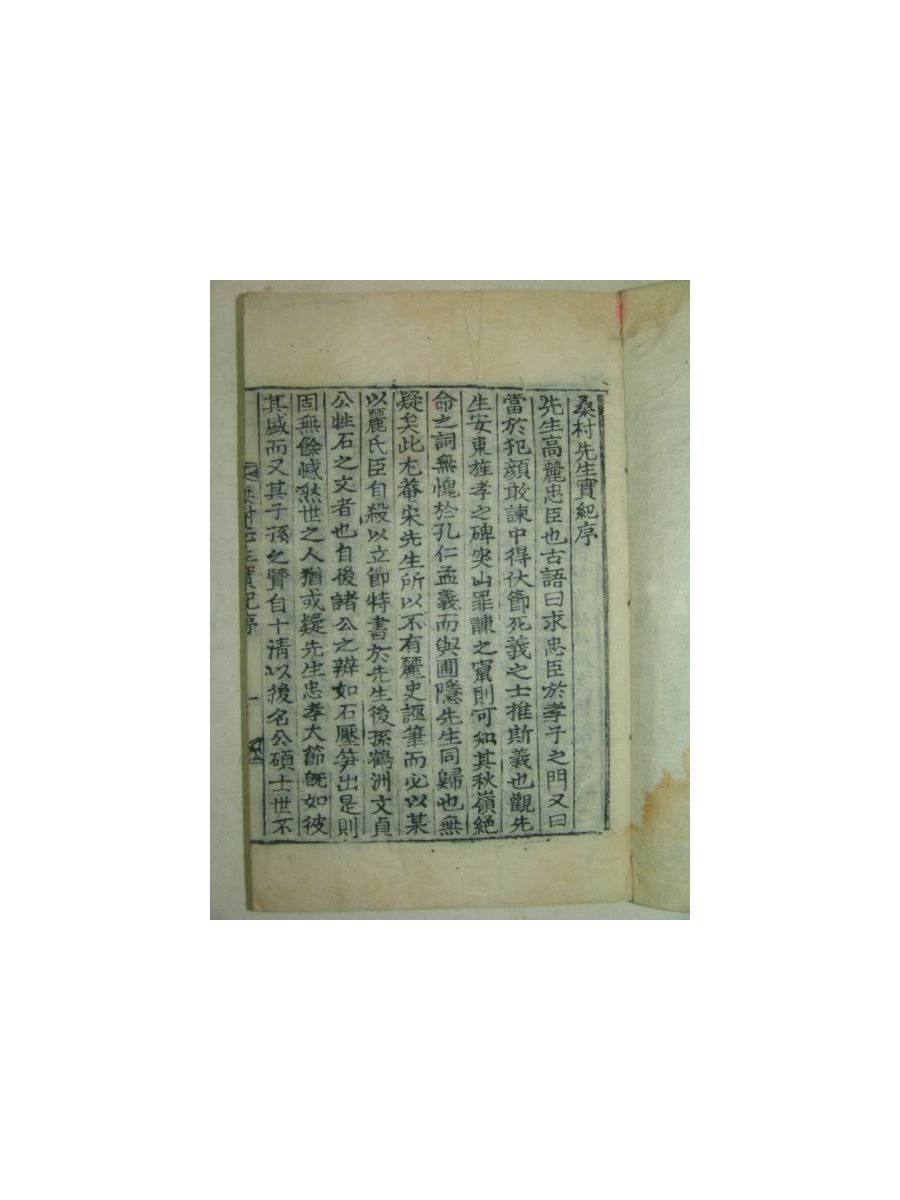 桑村先生實紀序
先生高麗忠臣也古語曰求忠臣於孝子之門又曰
當於犯顔敢諫中得伏節死義之士推斯義也觀先
生安東旌孝之碑突山罪諫之竄則可知其秋嶺絶
命之詞無愧於孔仁孟義而與圃隱先生同歸也無
疑矣此尤菴宋先生所以不有麗史誣筆而必以某
以麗氏臣自殺以立節特書於先生後孫鶴洲文貞
公牲石之文者也自後諸公之辨如石壓笋出是則
固無餘憾然世之人猶或疑先生忠孝大節旣如彼
其盛而又其子孫之賢自十淸以後名公碩士世不
桑村先生實紀序 一